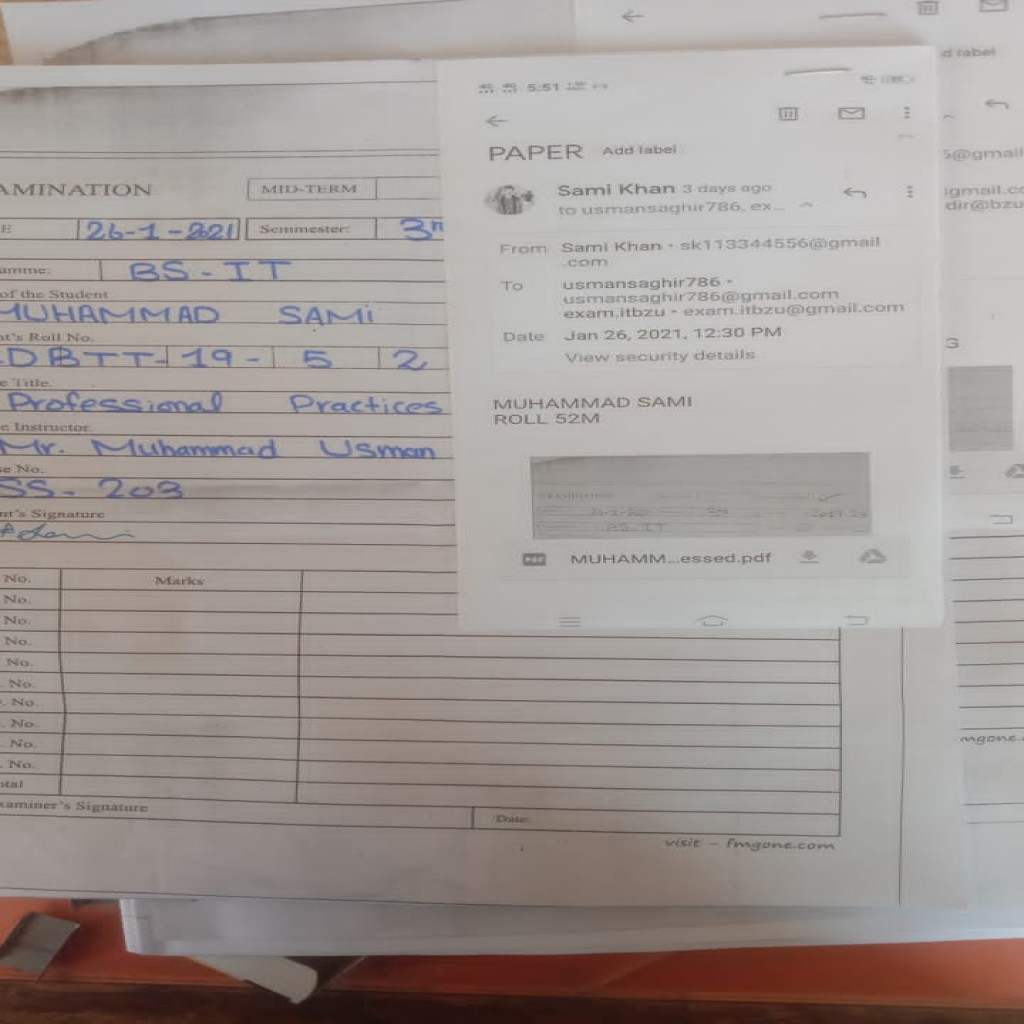 AMINATION
MID-TERM
E
26-1-2021
Semmester:
3r
amme:
BS-IT
of the Student
MUHAMMAD SAMi
nt's Roll No.
DBTT-19-52
e Title.
Professional Practices
e Instructor.
Mr. Muhammad Usman
se No.
SS-203
nt's Signature
No.
Marks
No.
No.
No.
No.
No.
No.
No.
No.
No.
otal
xaminer's Signature
Date:
visit - fmgone.com
5:51
PAPER Add label
Sami Khan 3 days ago
to usmansaghir786, ex...
From Sami Khan • sk113344556@gmail
.com
To usmansaghir786 •
usmansaghir786@gmail.com
exam.itbzu • exam.itbzu@gmail.com
Date Jan 26, 2021, 12:30 PM
View security details
MUHAMMAD SAMI
ROLL 52M
BS-IT
PDF MUHAMM...essed.pdf
d label
5@gmail
gmail.co
dir@bzu
G
mgone.